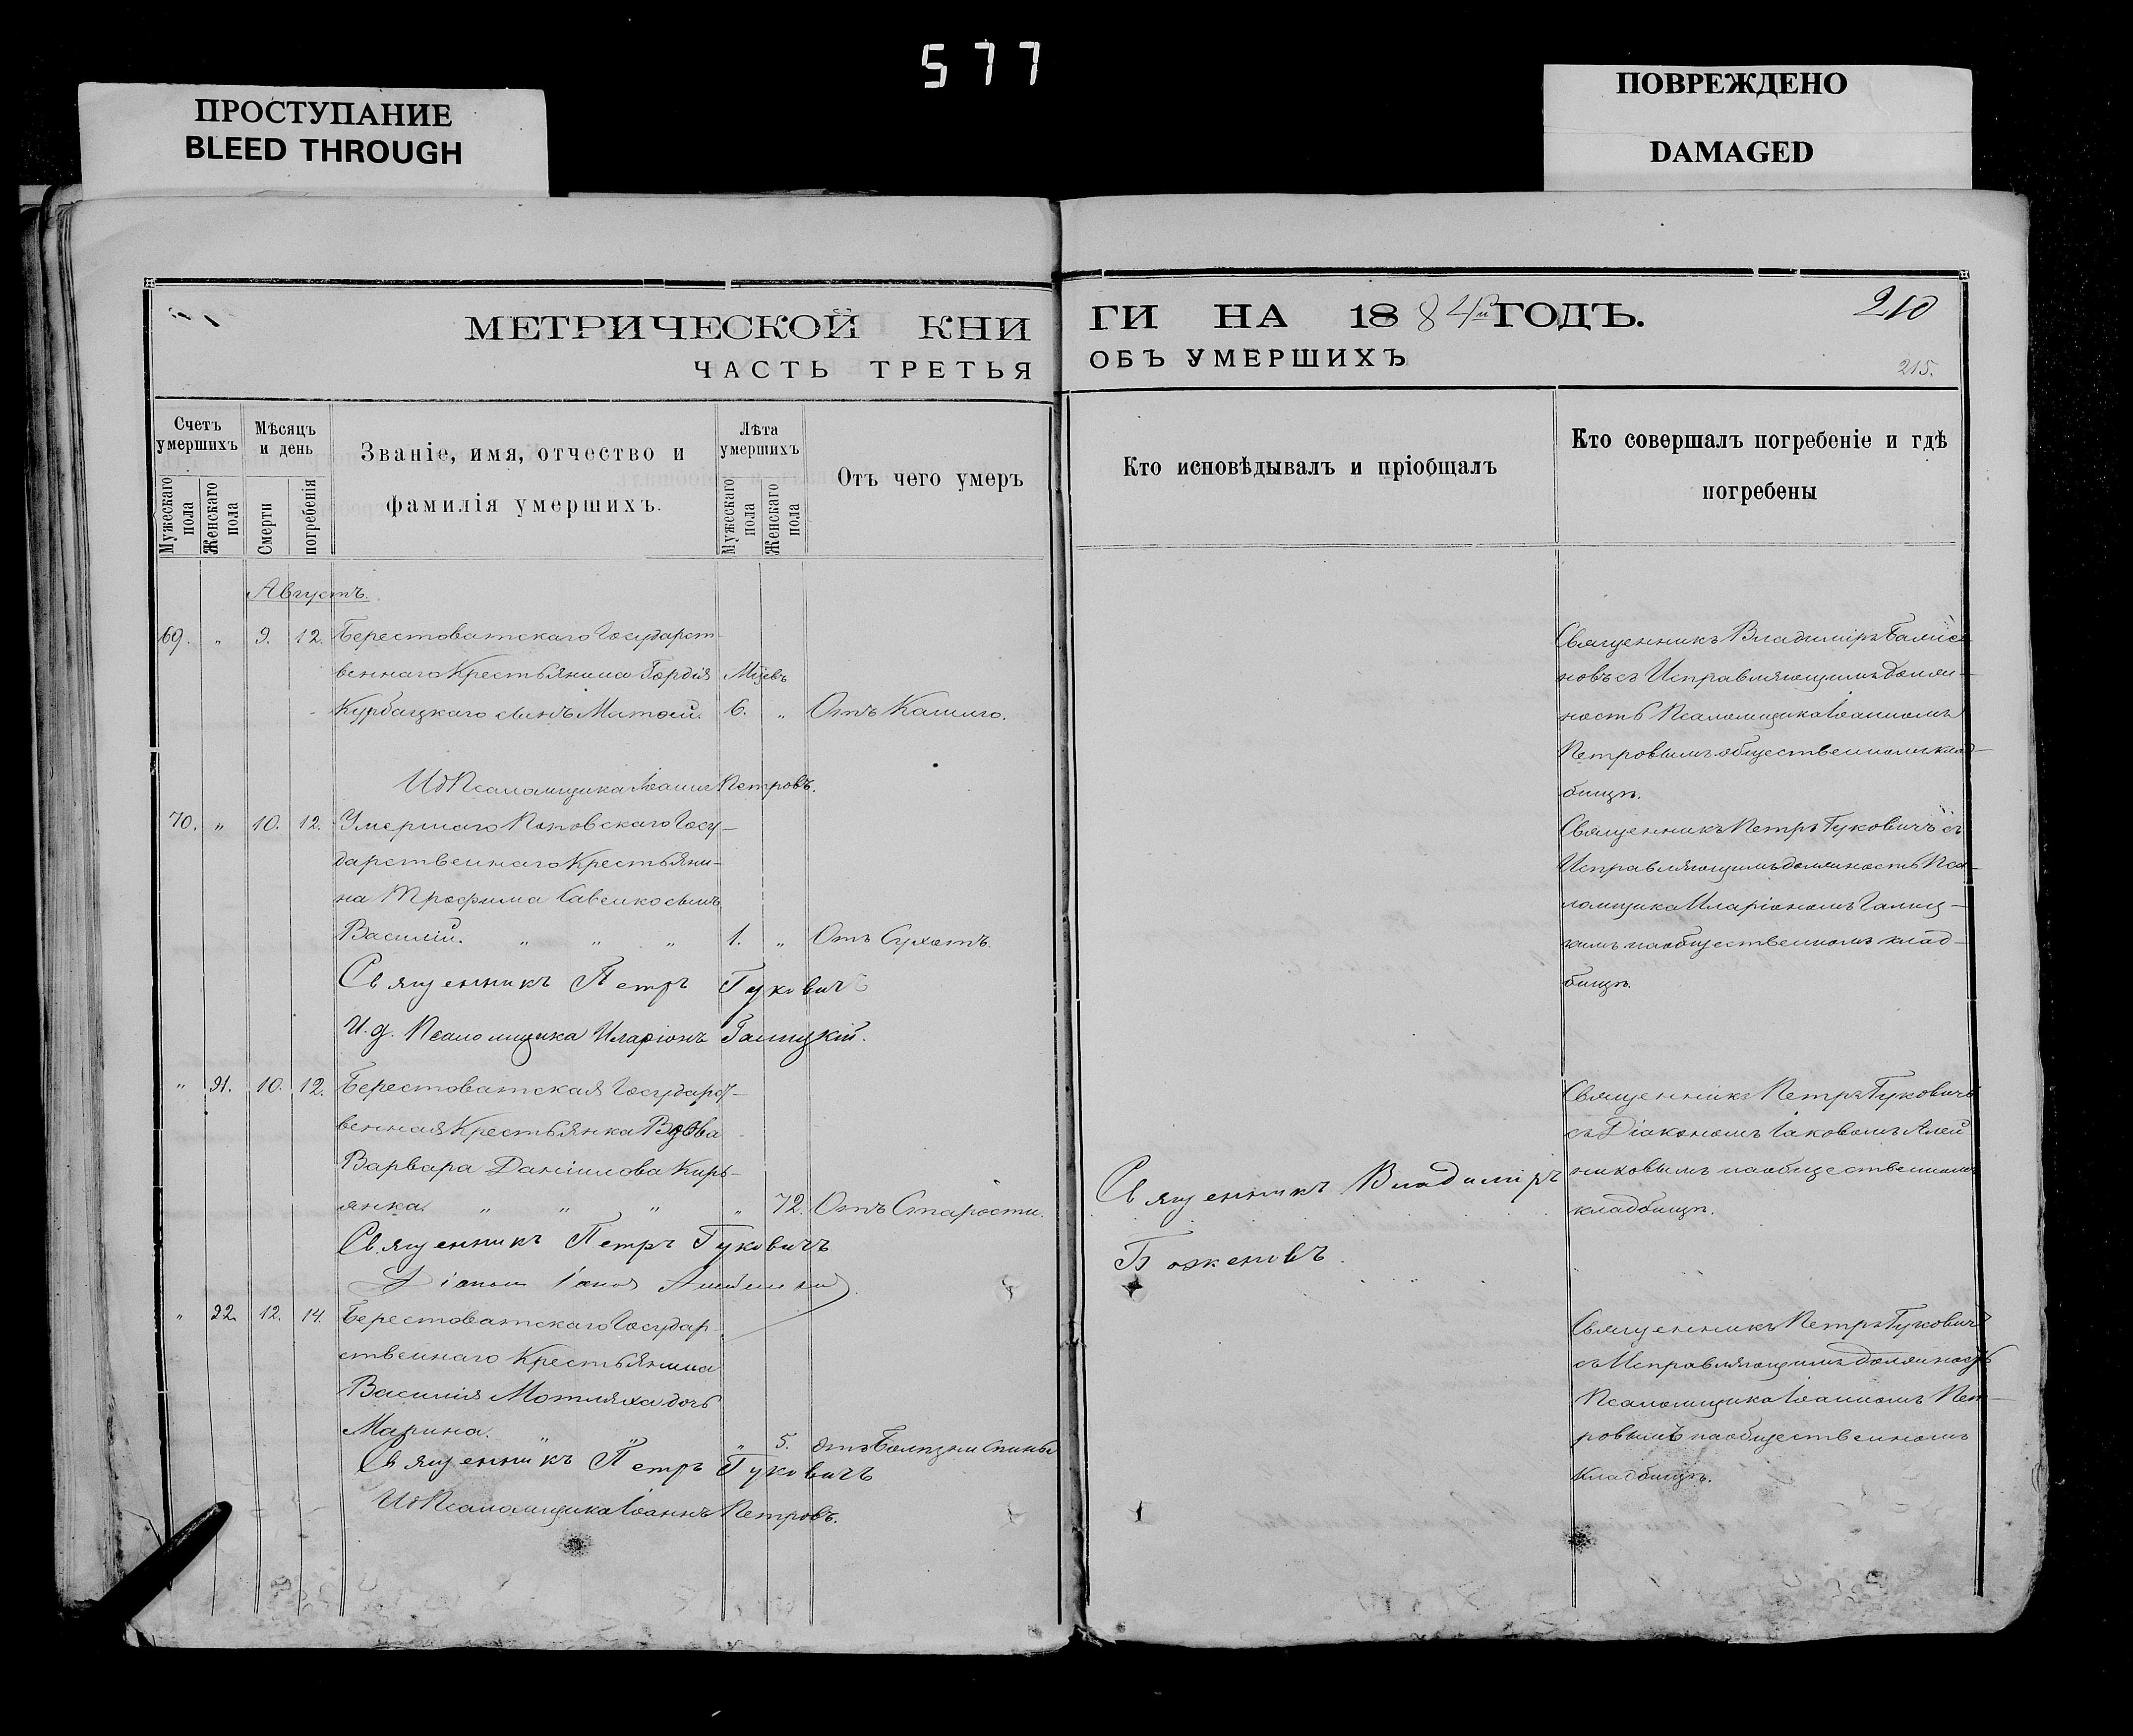 577
ПРОСТУПАНИЕ
BLEED THROUGH
ПОВРЕЖДЕНО
DAMAGED
МЕТРИЧЕСКОЙ КНИ
ЧАСТЬ ТРЕТЬЯ
Счетъ умершихъ
Мужескаго пола
Женскаго пола
Мѣсяцъ и день
Смерти
погребенія
Званіе, имя, отчество и
фамилія умершихъ.
Лѣта умершихъ
Мужескаго пола
Женскаго пола
Отъ чего умеръ
Августъ.
69. „ 9. 12. Берестоватскаго Государст-
веннаго Крестьянина Гордія
Курбацкаго сынъ 6. „ Отъ Кашлю.
ИдПсаломщика Іоаннъ Петровъ.
70. „ 10. 12. Умершаго Поповскаго Госу-
дарственнаго Крестьяни-
на Трофима Савенко сынъ
Василій. „ „ „ 1. „ Отъ Сухотъ.
Священникъ Петръ Гуковичъ
И.д. Псаломщика Иларіонъ Галицкій.
„ 21. 10. 12. Берестоватская Государст-
венная Крестьянка Вдова
Варвара Даніилова Кирь-
янка. „ „ „ „ 72. Отъ Старости.
Священникъ Петръ Гуковичъ
Діаконъ
„ 22. 12. 14. Берестоватскаго Государ-
ственнаго Крестьянина
Василія Мотляха дочь
Марина. „ „ „ 5. Отъ Болѣзни Спины
Священникъ Петръ Гуковичъ
ИдПсаломщика Іоаннъ Петровъ.
ГИ НА 1884й ГОДЪ.
210
ОБЪ УМЕРШИХЪ
215.
Кто исповѣдывалъ и пріобщалъ
Кто совершалъ погребеніе и гдѣ
погребены
Священникъ Владиміръ
новъ съ Исправляющимъ долж-
ность Псаломщика Іоанномъ
Петровымъ общественномъ клад-
бищѣ.
Священникъ Петръ Гуковичъ съ
Исправляющимъ должность Пса-
ломщика Иларіономъ Галиц-
кимъ на общественномъ клад-
бищѣ.
Священникъ Владиміръ
Боженовъ.
Священникъ Петръ Гуковичъ
съ Діакономъ Іаковомъ Алей
никовымъ на общественномъ
кладбищѣ.
Священникъ Петръ Гуковичъ
съ Исправляющимъ должность
Псаломщика Іоанномъ Пет-
ровымъ на общественномъ
кладбищѣ.